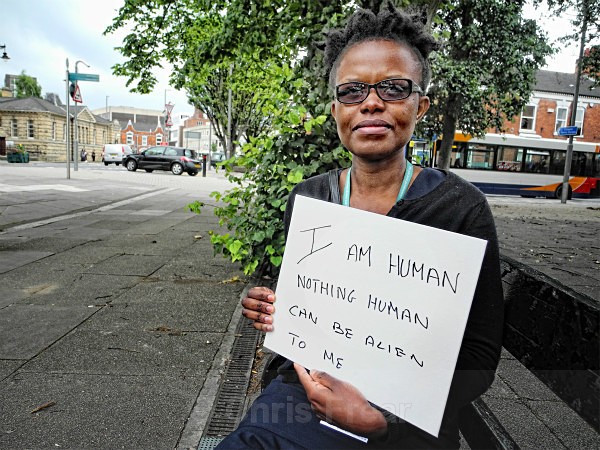 I AM HUMAN
NOTHING HUMAN
CAN BE ALIEN
TO ME